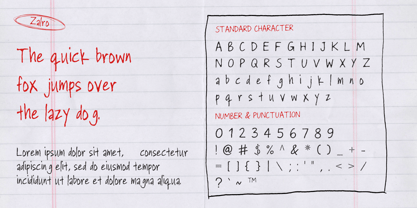 Zalro
The quick brown
fox jumps over
the lazy dog.
Lorem ipsum dolor sit amet, consectetur
adipiscing elit, sed do eiusmod tempor
incididunt ut labore et dolore magna aliqua
STANDARD CHARACTER
A B C D E F G H I J K L M
N O P Q R S T U V W X Y Z
a b c d e f g h i j k l m n o
p q r s t u v w x y z
NUMBER & PUNCTUATION
0 1 2 3 4 5 6 7 8 9
! @ # $ % ^ & * ( ) _ + -
= [ ] { } | \ ; : ' " , . < > /
? ` ~ ™